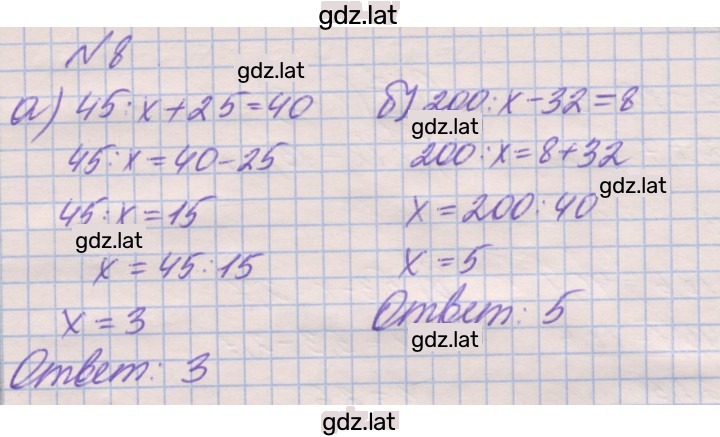 gdz.lat
№ 8
gdz.lat
а) 45:x+25=40
45:x=40-25
45:x=15
gdz.lat
x=45:15
x=3
Ответ: 3
б) 200:x-32=8
gdz.lat
200:x=8+32
gdz.lat
x=200:40
x=5
Ответ: 5
gdz.lat
gdz.lat